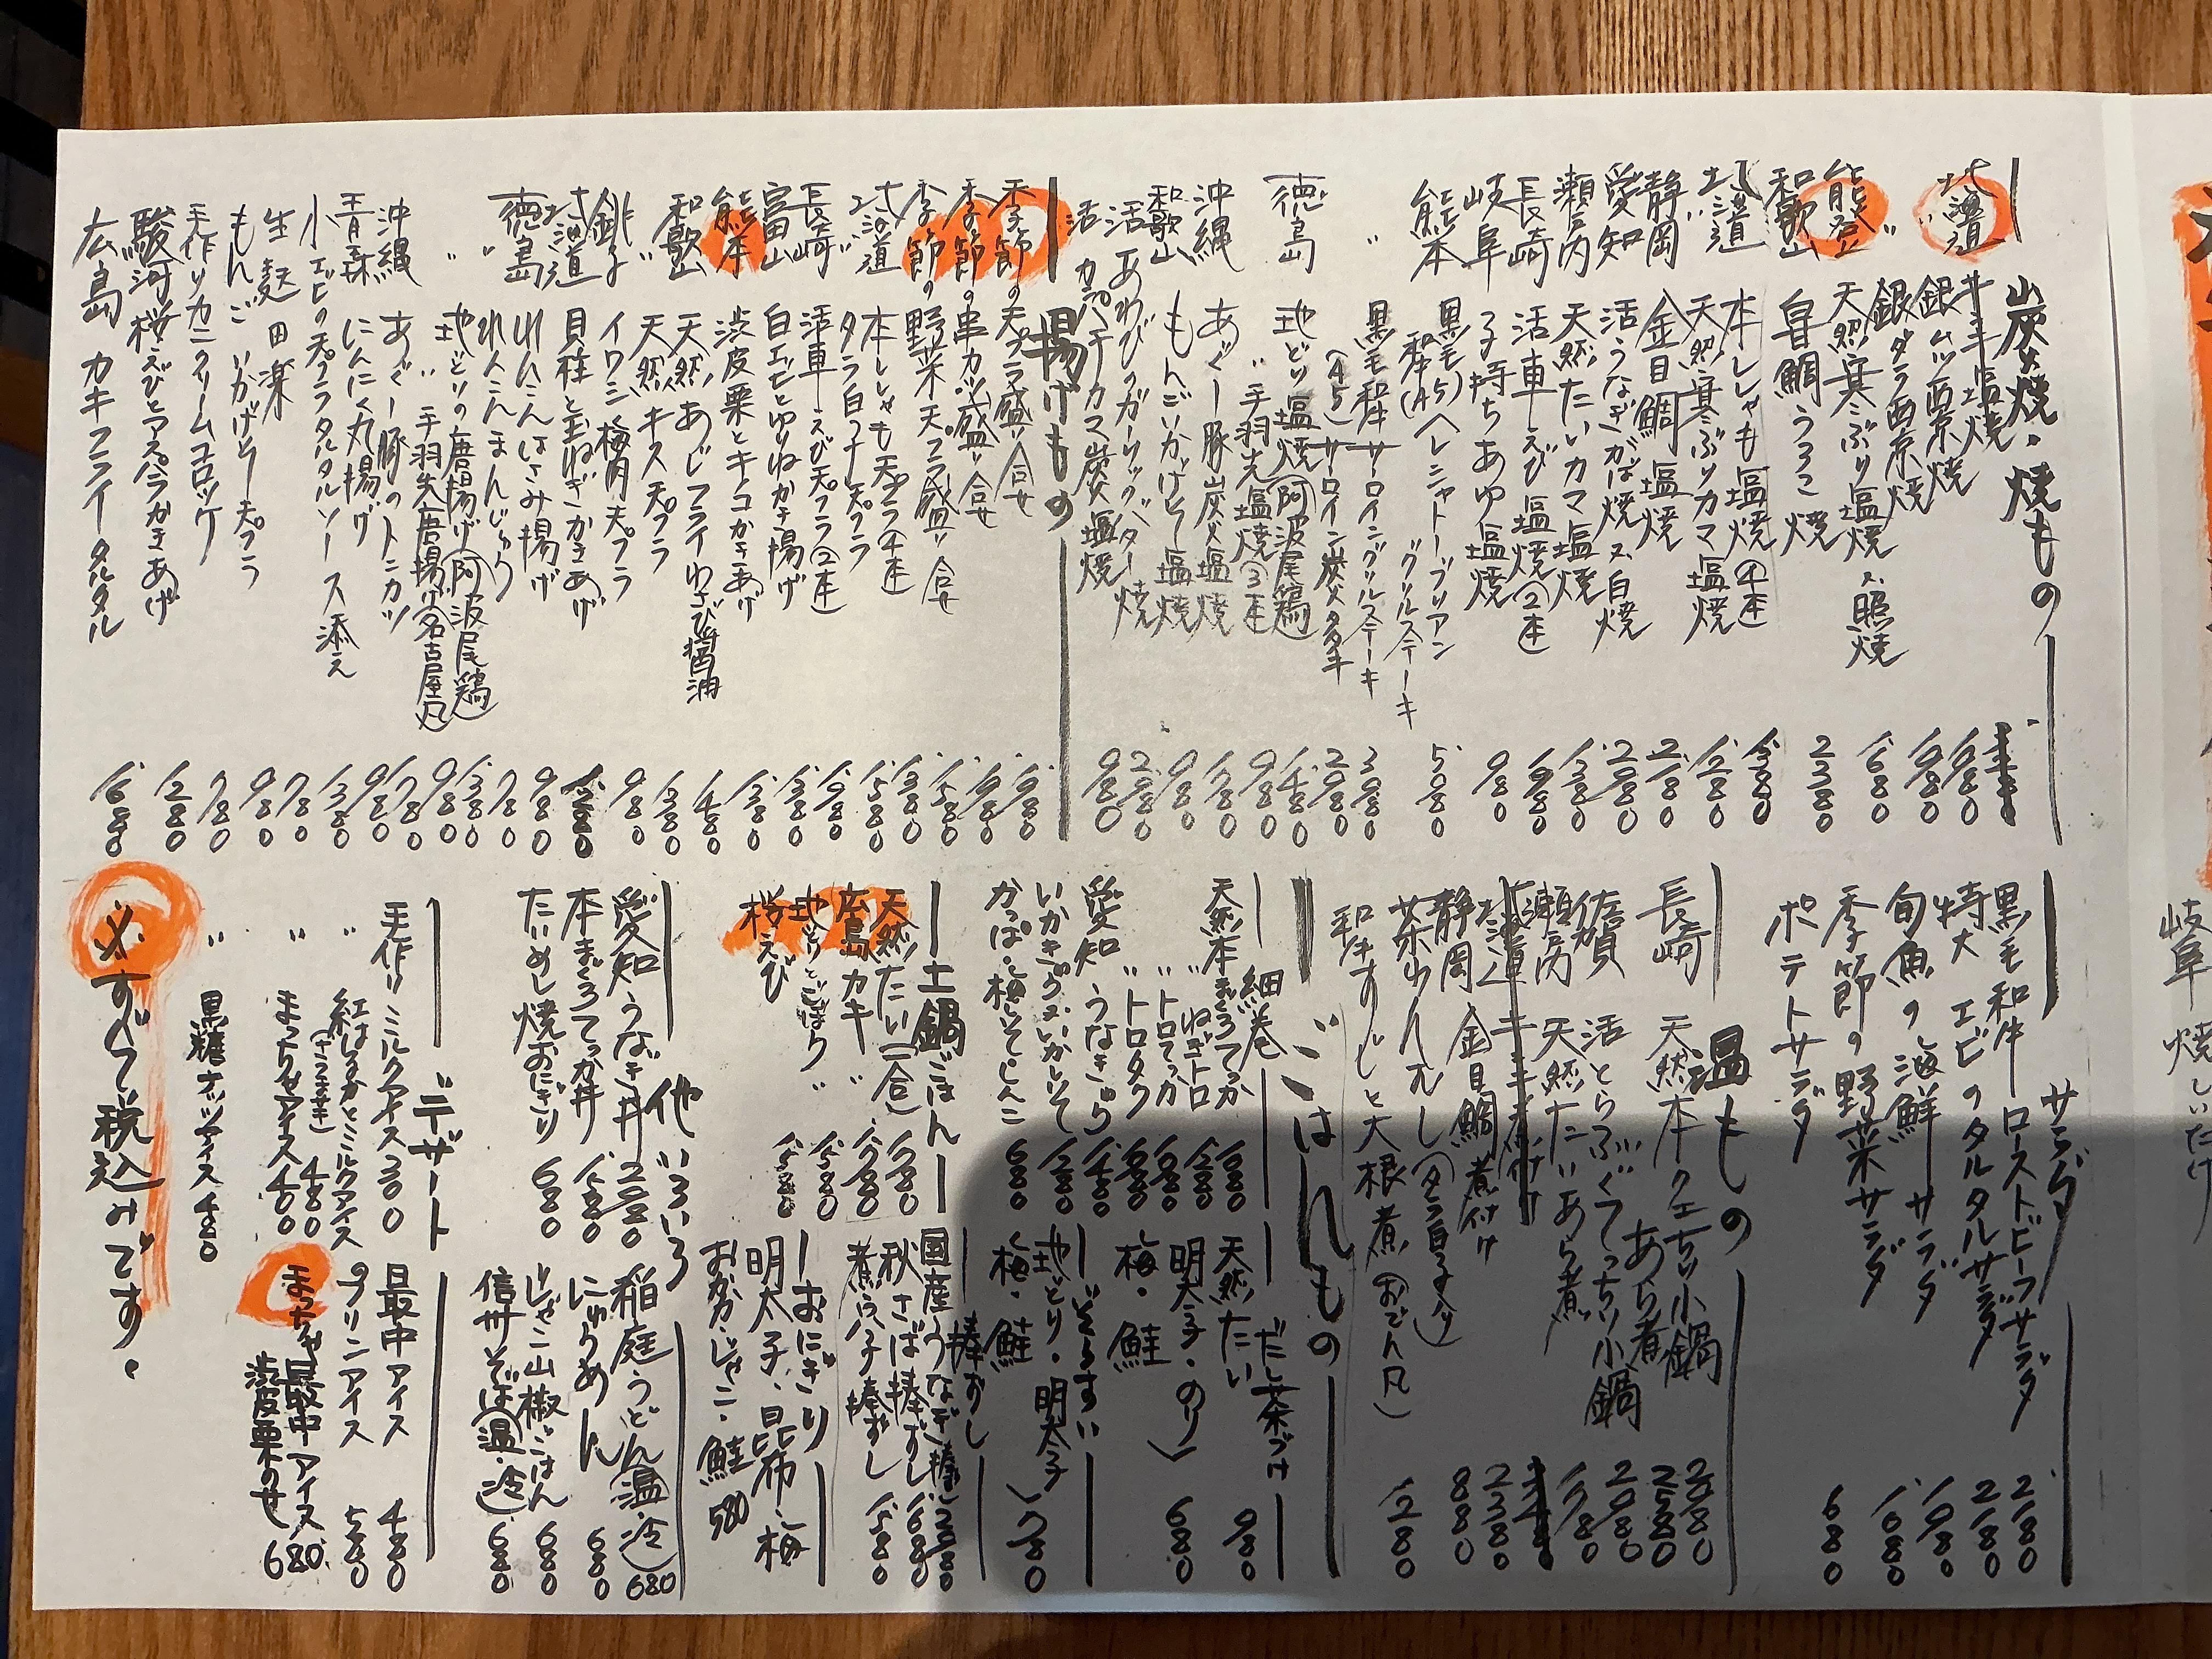 炭火焼・焼もの
北海道 キンキ塩焼
銀ムツ西京焼 1980
〃 銀ダラ西京焼 1980
能登 天然寒ぶり塩焼又照焼 1680
和歌山 甘鯛うろこ焼 2380
北海道 本ししゃも塩焼(4本) 1380
〃 天然寒ぶりカマ塩焼 1280
静岡 金目鯛塩焼 2180
愛知 活うなぎかば焼又白焼 2980
瀬戸内 天然たいカマ塩焼 1380
長崎 活車えび塩焼(2本) 1980
岐阜 子持ちあゆ塩焼 980
熊本 黒毛和牛(A5)ヘレシャトーブリアングリルステーキ 5080
〃 黒毛和牛(A5)サーロイングリルステーキ 3980
サーロイン炭火タタキ 2980
徳島 地どり塩焼(阿波尾鶏) 1480
〃手羽先塩焼(3本) 980
沖縄 あぐー豚炭火塩焼 1780
和歌山 もんごいかげそ塩焼 980
活あわびのガーリックバター焼 2980
活カンパチカマ炭火塩焼 980
揚げもの
季節の天プラ盛り合せ 1980
季節の串カツ盛り合せ 1980
季節の野菜天プラ盛り合せ 1580
北海道 本ししゃも天プラ(4本) 1380
〃 タラ白子天プラ 1580
長崎 活車えび天プラ(2本) 1980
富山 白エビとゆりねかき揚げ 1380
熊本 渋皮栗とキノコかきあげ 1380
和歌山 天然あじフライわさび醤油 1480
〃 天然キス天プラ 1380
銚子 イワシ梅肉天プラ 980
北海道 貝柱と玉ねぎかきあげ
徳島 れんこんはさみ揚げ 980
〃 れんこんまんじゅう 780
〃 地どりの唐揚げ(阿波尾鶏) 1380
〃 手羽先唐揚げ(名古屋風) 980
沖縄 あぐー豚のトンカツ 1780
青森 にんにく丸揚げ 980
小エビの天プラタルタルソース添え 1380
生麩田楽 780
もんごいかげそ天プラ 980
手作りカニクリームコロッケ 780
駿河桜えびとアスパラかきあげ 1280
広島 カキフライタルタル 1680
サラダ
黒毛和牛ローストビーフサラダ 2180
特大エビのタルタルサラダ 2180
旬魚の海鮮サラダ 1980
季節の野菜サラダ 1680
ポテトサラダ 680
温もの
長崎 天然本クエちり小鍋 2980
あら煮 2580
佐賀 活とらふぐてっちり小鍋 2980
瀬戸内 天然たいあら煮 1780
北海道 キンキ煮付け
静岡 金目鯛煮付け 2380
茶わんむし(タラ白子入り) 880
和牛すじと大根煮(おでん風) 1280
ごはんもの
細巻
天然本まぐろてっか 1680
〃 ねぎトロ 1280
〃トロてっか 1680
〃トロタク 1680
愛知 うなきゅう 1480
いかきゅう・いかしそ 1280
かっぱ・梅しそしんこ 680
だし茶づけ
天然たい 980
明太子・のり
梅・鮭 680
ぞうすい
地どり・明太子
梅・鮭 780
土鍋ごはん
天然たい(一合) 1780
広島カキ 〃 1780
地どりとごぼう 〃 1580
桜えび 1580
棒ずし
国産うなぎ棒 2980
秋さば棒ずし 1680
煮穴子棒ずし 1580
おにぎり
明太子・昆布・梅
おかか・じゃこ・鮭 580
他いろいろ
愛知うなぎ丼 2980
本まぐろてっか丼 1580
たいめし焼おにぎり 680
稲庭うどん(温・冷) 680
にゅうめん 680
じゃこ山椒ごはん 680
信州そば(温・冷) 680
デザート
手作りミルクアイス 300
〃 紅はるかとミルクアイス(さつまいも) 480
〃 まっちゃアイス 400
〃 黒糖ナッツアイス 480
最中アイス 480
プリンアイス 580
まっちゃ最中アイス 680
渋皮栗のせ 680
※すべて税込みです。
岐阜 焼しいたけ